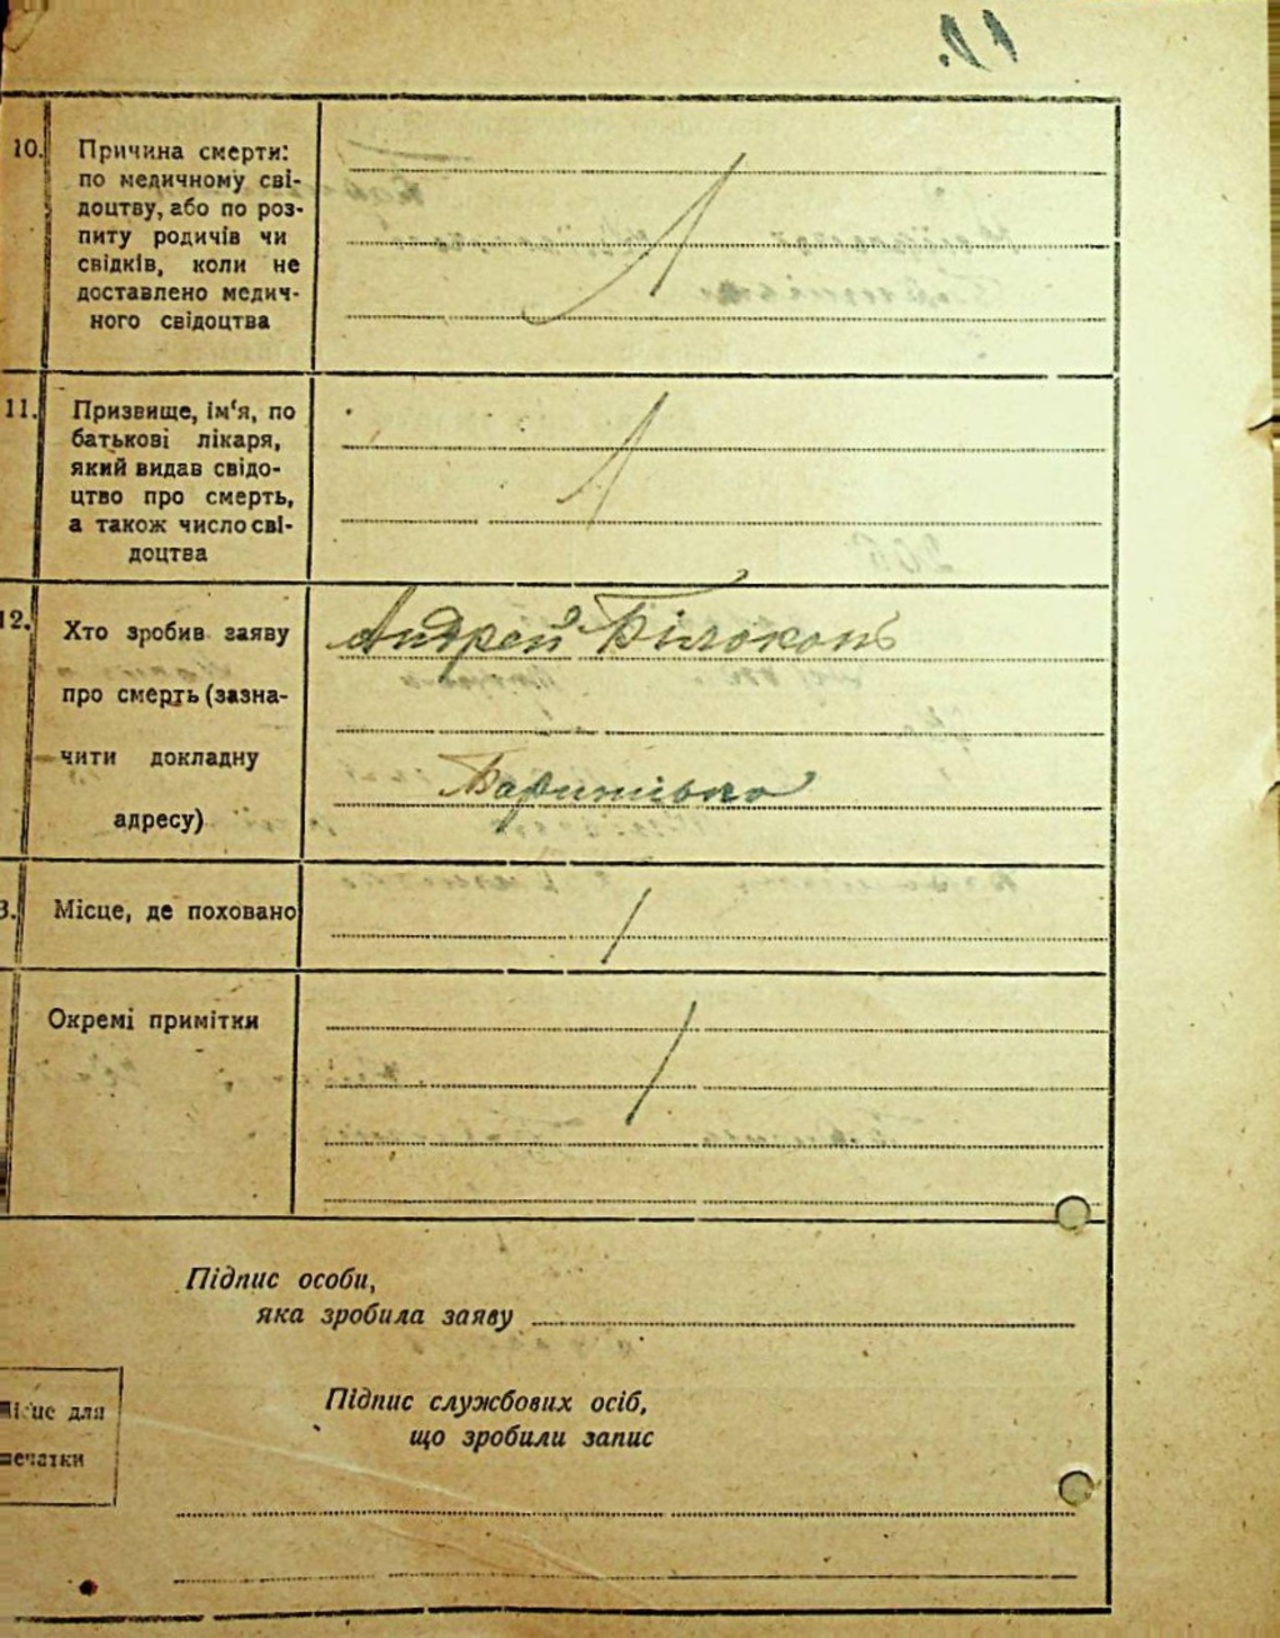 10. Причина смерти:
по медичному сві-
доцтву, або по роз-
питу родичів чи
свідків, коли не
доставлено медич-
ного свідоцтва
11. Призвище, ім‘я, по
батькові лікаря,
який видав свідо-
цтво про смерть,
а також число сві-
доцтва
12. Хто зробив заяву
про смерть (зазна-
чити докладну
адресу)
Андрей Білоконь
3. Місце, де поховано
Окремі примітки
Підпис особи,
яка зробила заяву
Місце для
печатки
Підпис службових осіб,
що зробили запис